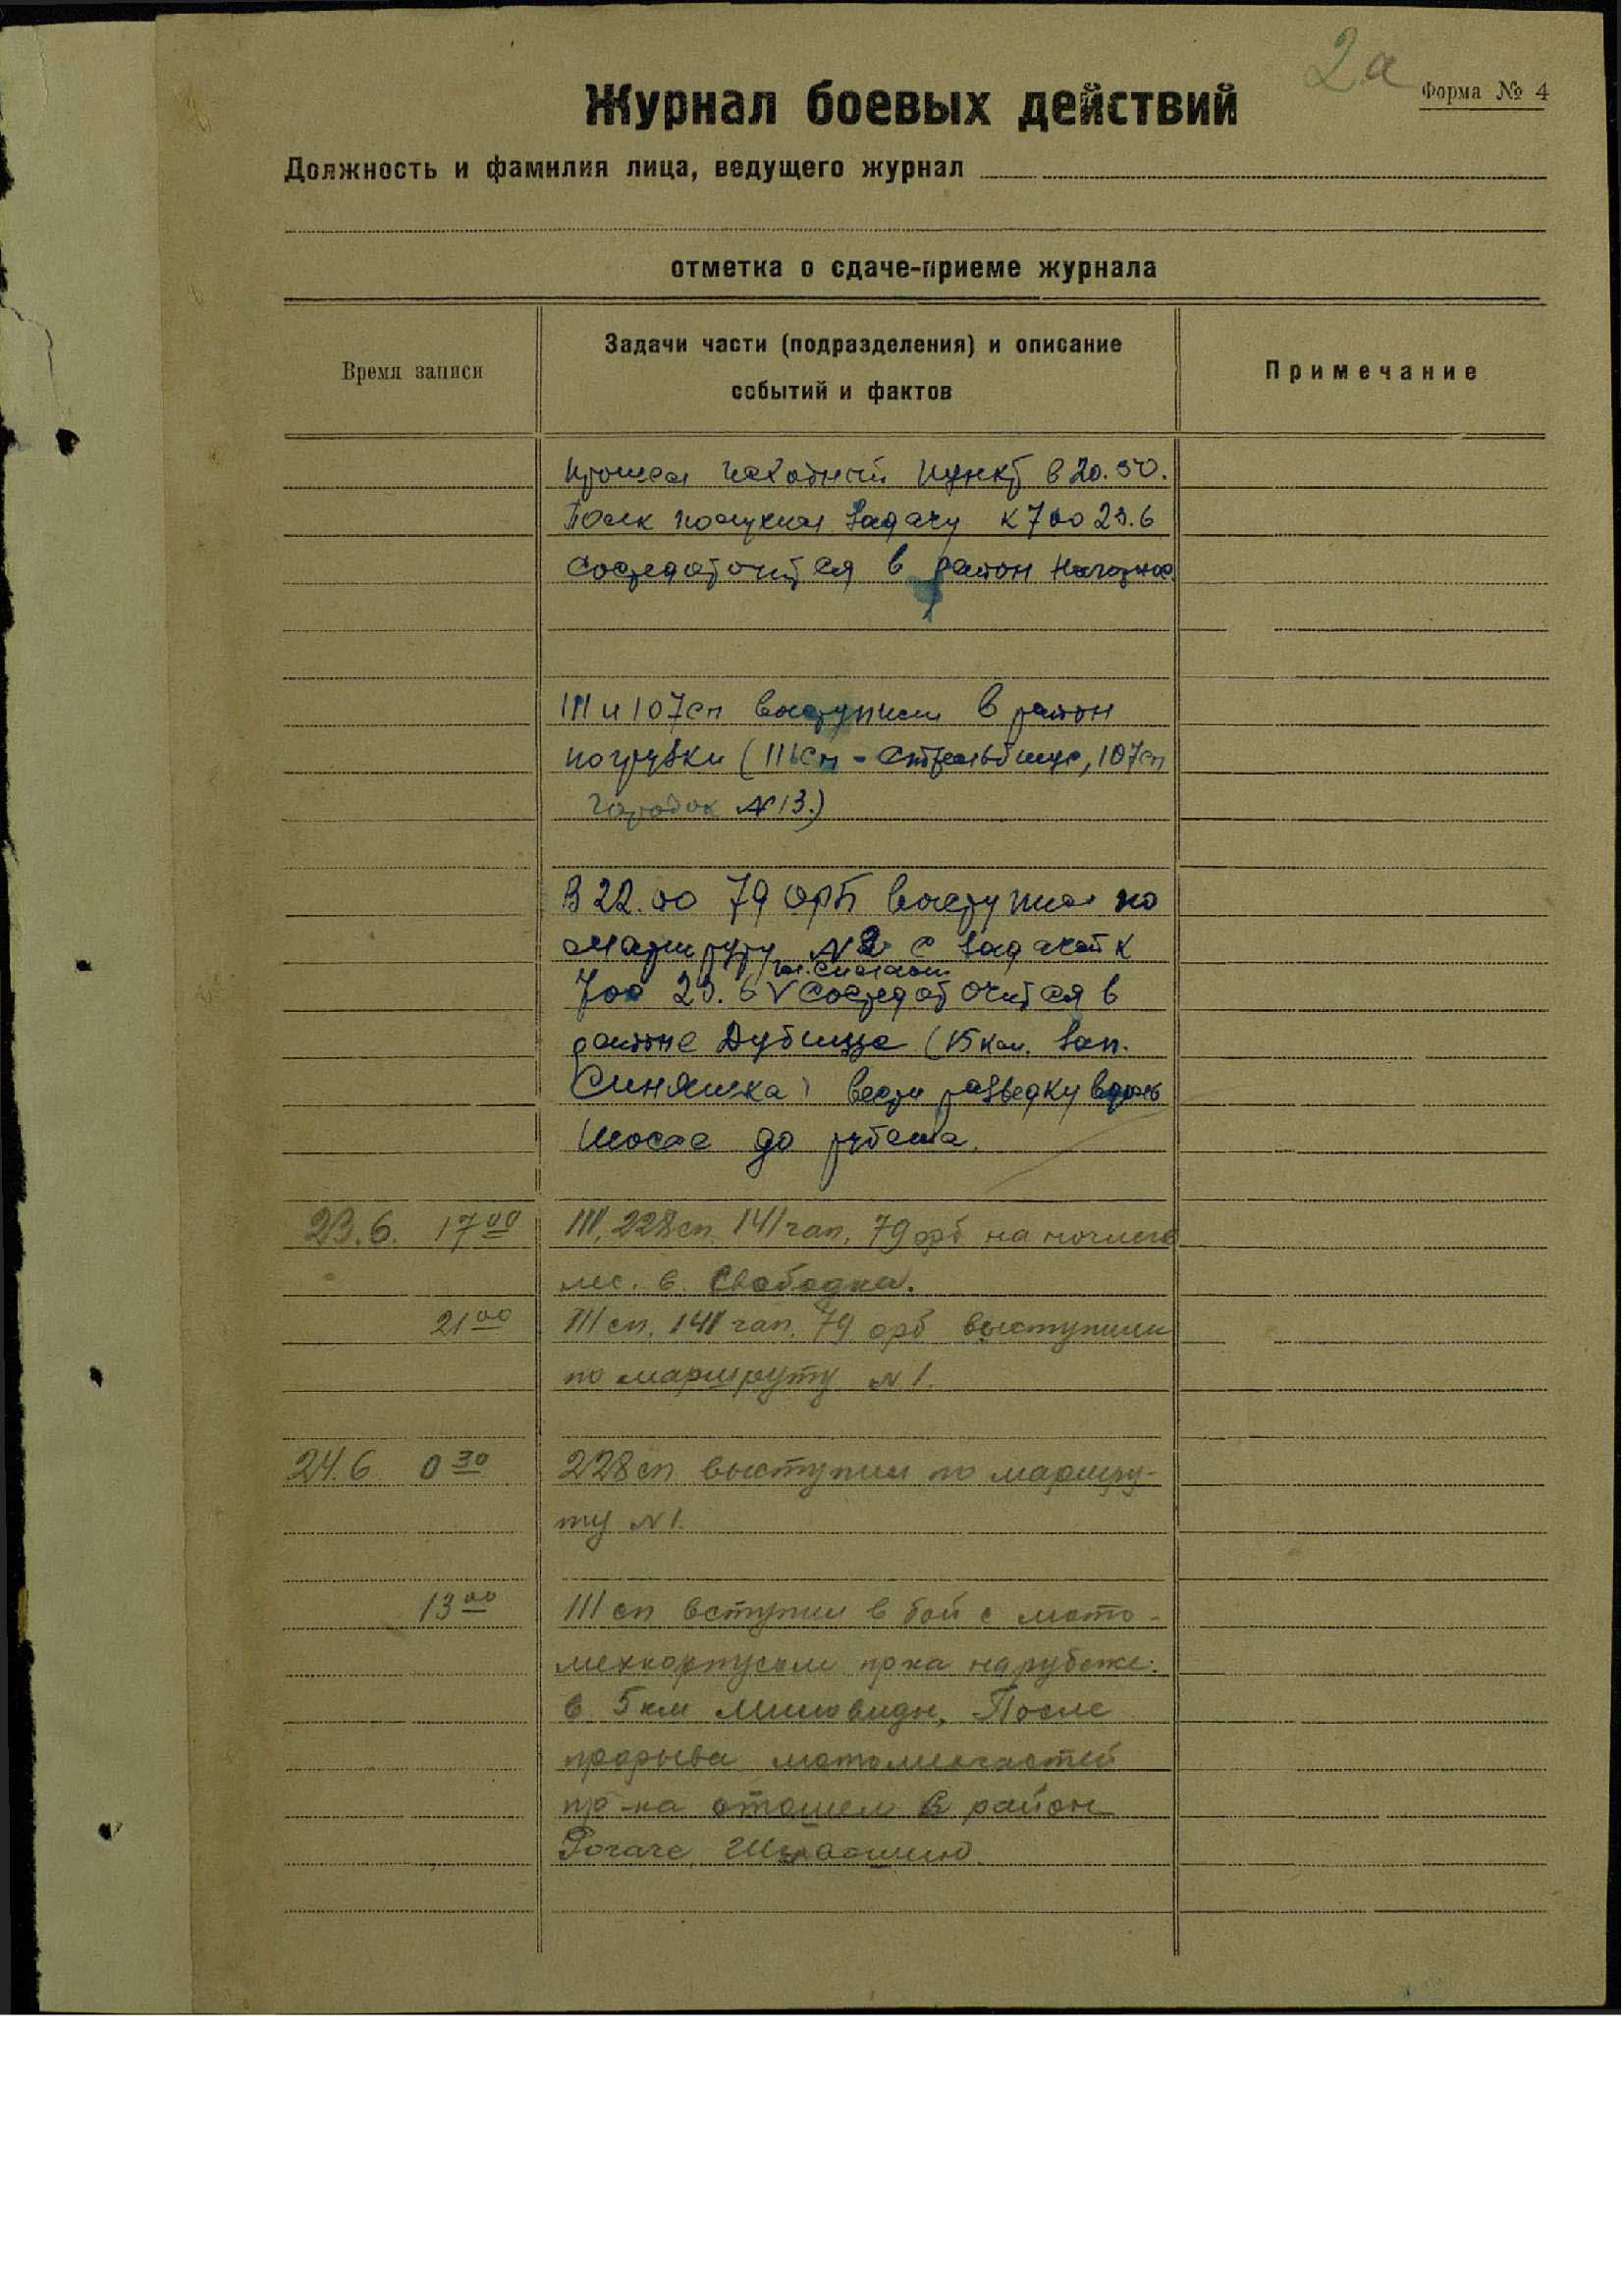 2а
Форма № 4
Журнал боевых действий
Должность и фамилия лица, ведущего журнал
отметка о сдаче-приеме журнала
Время записи
Задачи части (подразделения) и описание
событий и фактов
Примечание
прошел исходный пункт в 20.50.
Полк получил задачу к 7 00 23.6
сосредоточится в район
111 и 107сп выступили в район
погрузки (111сп - стрельбище, 107сп
городок № 13.)
В 22.00 79 ОРБ выступил по
маршруту № с задачей к
7 00 23.6 V сосредоточится в
районе Дубище (15 км. зап.
Синявка) вести разведку вдоль
шоссе до рубежа.
23.6. 17 00 111, 228сп. 141 гап, 79 орб на ночлеге
лес. в. Свободка.
21 00 111 сп. 141 гап. 79 орб выступили
по маршруту № 1.
24.6 0 30 228 сп выступил по маршру-
ту № 1.
13 00 111 сп вступил в бой с мото-
мехкорпусом пр-ка на рубеже:
в 5 км Миловиды, После
прорыва мотомехчастей
пр-ка отошел в район